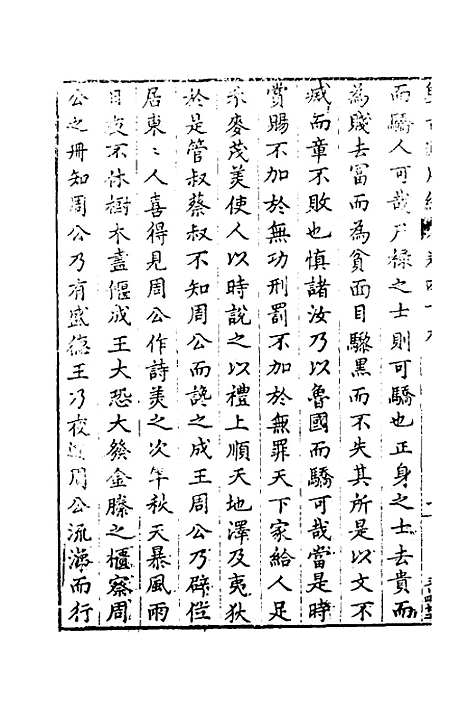 而驕人可哉尸祿之士則可驕也正身之士去貴而
為賤去富而為貧面目黧黑而不失其所是以文不
滅而章不敗也慎諸汝乃以魯國而驕可哉當是時
賞賜不加於無功刑罰不加於無罪天下家給人足
禾麥茂美使人以時說之以禮上順天地澤及夷狄
於是管叔蔡叔不知周公而讒之成王周公乃辟位
居東〻人喜得見周公作詩美之次年秋天暴風雨
日夜不休樹木盡偃成王大恐大發金縢之櫃察周
公之冊知周公乃有盛德王乃夜迎周公流涕而行